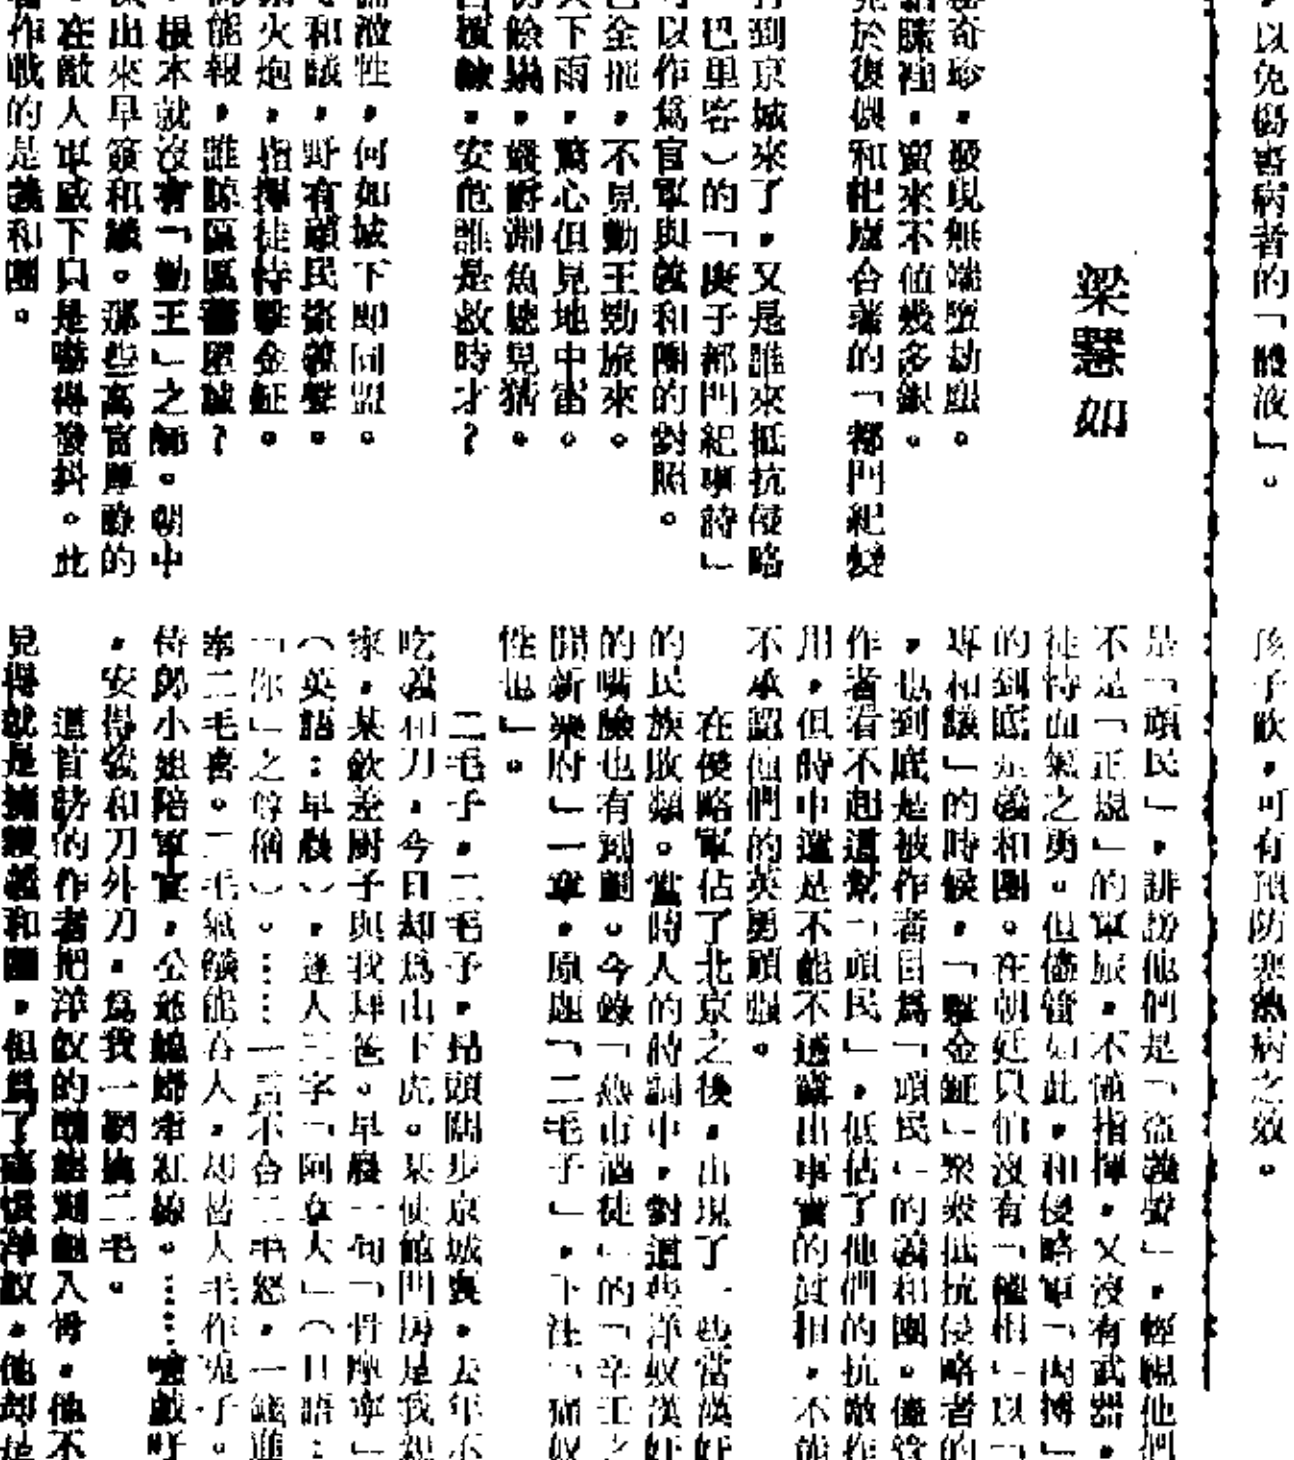 ，以免傷害病者的「體液」。
孩子飲，可有預防寒熱病之效。
梁慧如
奇珍，發現無端墮劫塵。
，賣來不值幾多銀。
於復儂和杞廬合著的「都門紀變
到京城來了，又是誰來抵抗侵略
巴里客）的「庚子都門紀事詩」
可以作爲官軍與義和團的對照。
全摧，不見勤王勁旅來。
下雨，驚心但見地中雷。
，爵淵魚總見猜。
，安危誰是救時才？
性，何如城下即同盟。
和議，野有頑民盜義聲。
火炮，指揮徒恃擊金鉦。
能報，誰
根本就沒有「勤王」之師。朝中
出來早簽和議。那些高官厚祿的
，在敵人軍威下只是嚇得發抖。此
作戰的是義和團。
是「頑民」，誹謗他們是「盜義聲」，輕視他們
不是「正規」的軍旅，不懂指揮，又沒有武器，
徒恃血氣之勇。但儘管如此，和侵略軍「肉搏」
的到底是義和團。在朝廷只怕沒有「權相」以「
專和議」的時候，「擊金鉦」聚衆抵抗侵略者的
，也到底是被作者目爲「頑民」的義和團。儘管
作者看不起這幫「頑民」，低估了他們的抗敵作
用，但詩中還是不能不透露出事實的眞相，不能
不承認他們的英勇頑强。
在侵略軍佔了北京之後，出現了一些當漢奸
的民族敗類。當時人的詩詞中，對這些洋奴漢奸
的嘴臉也有刻劃。今錄「熱市酒徒」的「辛壬之
間新樂府」一章，原題「二毛子」，下注「痛奴
性也」。
二毛子，二毛子，昂頭闊步京城裏，去年不
吃義和刀，今日却爲山下虎。某使館門房是我親
家，某欽差厨子與我拜爸。早晨一句「骨摩寧」
（英語：早晨），逢人三字「阿拿大」（日語：
「你」之尊稱）。……一言不合二毛怒，一錢進
奉二毛喜。二毛氣餒能吞人，却替人毛作鬼子。
侍郎小姐陪軍官，公爺媳婦牽紅線。……噫戲吁
，安得義和刀外刀，爲我一劈二毛。
這首詩的作者把洋奴的醜態刻劃入骨，他不
見得就是擁護義和團，但爲了痛恨洋奴，他却是